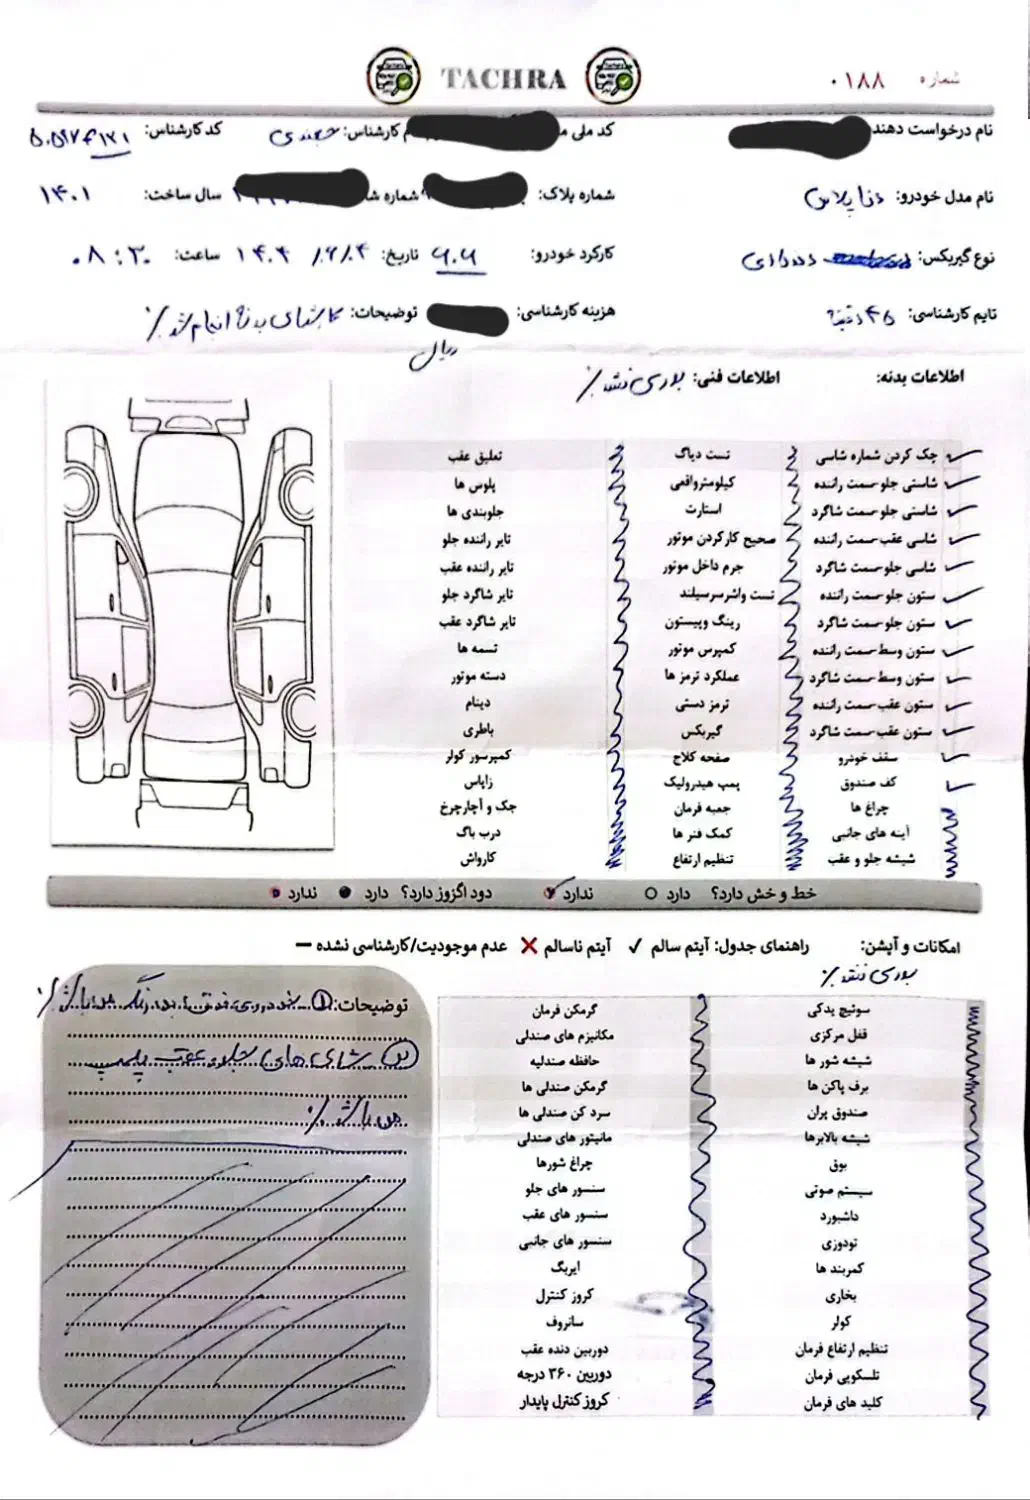 TACHRA
شماره ۰۱۸۸
نام درخواست دهنده کد ملی م نام کارشناس: کد کارشناس:
نام مدل خودرو: دنا پلاس شماره پلاک: شماره شا سال ساخت: ۱۴۰۱
نوع گیربکس: دنده‌ای کارکرد خودرو: تاریخ: ساعت: ۰۸:۳۰
تایم کارشناسی: ۴۵ دقیقه هزینه کارشناسی: ریال توضیحات: کارشناسی بدنه انجام شد ./
اطلاعات بدنه: اطلاعات فنی: بررسی نشد ./
چک کردن شماره شاسی تست دیاگ تعلیق عقب
شاستی جلو-سمت راننده کیلومترواقعی پلوس ها
شاستی جلو-سمت شاگرد استارت جلوبندی ها
شاسی عقب-سمت راننده صحیح کارکردن موتور تایر راننده جلو
شاسی جلو-سمت شاگرد جرم داخل موتور تایر راننده عقب
ستون جلو-سمت راننده تست واشرسرسیلند تایر شاگرد جلو
ستون جلو-سمت شاگرد رینگ وپیستون تایر شاگرد عقب
ستون وسط-سمت راننده کمپرس موتور تسمه ها
ستون وسط-سمت شاگرد عملکرد ترمز ها دسته موتور
ستون عقب-سمت راننده ترمز دستی دینام
ستون عقب-سمت شاگرد گیربکس باطری
سقف خودرو صفحه کلاج کمپرسور کولر
کف صندوق پمپ هیدرولیک زاپاس
چراغ ها جعبه فرمان جک و آچارچرخ
آینه های جانبی کمک فنر ها درب باک
شیشه جلو و عقب تنظیم ارتفاع کارواش
خط و خش دارد؟ دارد ندارد دود اگزوز دارد؟ دارد ندارد
امکانات و آپشن: راهنمای جدول: آیتم سالم ✓ آیتم ناسالم ✗ عدم موجودیت/کارشناسی نشده —
بررسی نشد ./
سوئیچ یدکی گرمکن فرمان
قفل مرکزی مکانیزم های صندلی
شیشه شور ها حافظه صندلیه
برف پاکن ها گرمکن صندلی ها
صندوق پران سرد کن صندلی ها
شیشه بالابرها مانیتور های صندلی
بوق چراغ شورها
سیستم صوتی سنسور های جلو
داشبورد سنسور های عقب
تودوزی سنسور های جانبی
کمربند ها ایربگ
بخاری کروز کنترل
کولر سانروف
تنظیم ارتفاع فرمان دوربین دنده عقب
تلسکوپی فرمان دوربین ۳۶۰ درجه
کلید های فرمان کروز کنترل پایدار
توضیحات: ① خودروی فوق بدون رنگ میباشد ./
② شاسی های جلو و عقب پلمپ
میباشد ./